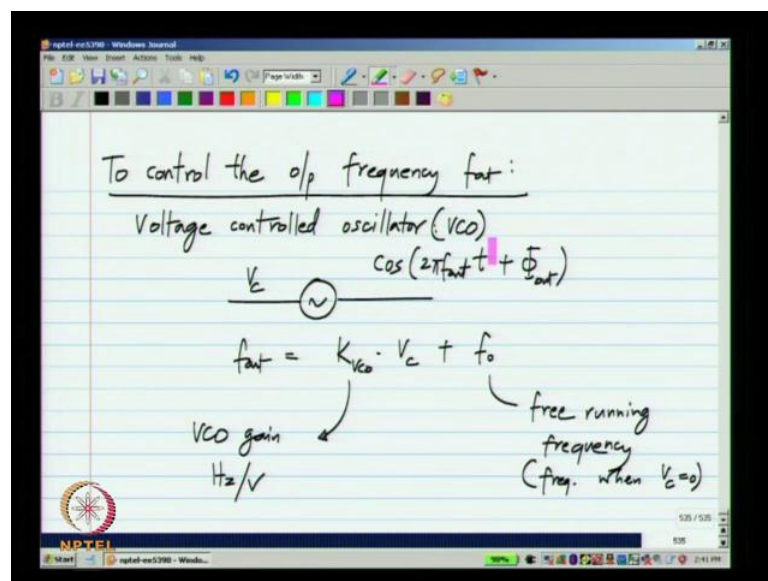 nptel-ee5390 - Windows Journal
File Edit View Insert Actions Tools Help
Page Width
B I
To control the o/p frequency fout :
Voltage controlled oscillator (VCO)
Vc cos (2πfout t + Φout)
~
fout = KVCO · Vc + fo
VCO gain
Hz/V
free running
frequency
(freq. when Vc=0)
535 / 535
535
NPTEL
Start nptel-ee5390 - Windo... 98% 2:41 PM